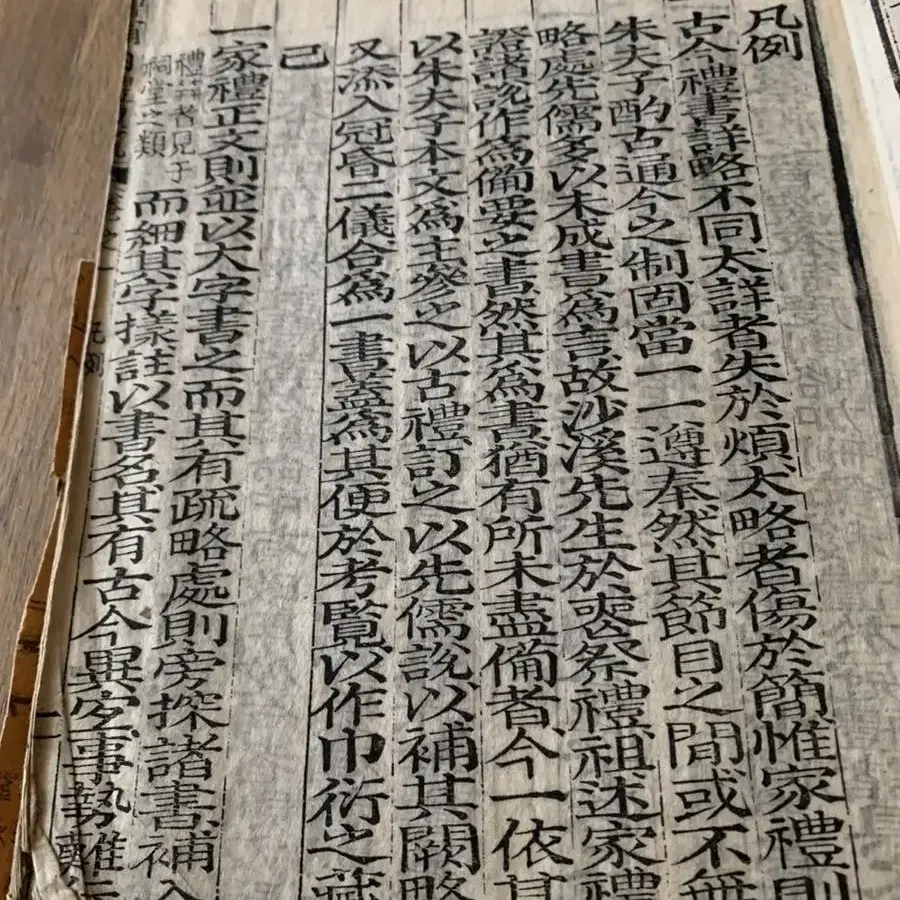 凡例
古今禮書詳略不同太詳者失於煩太略者傷於簡惟家禮則
朱夫子酌古通今之制固當一一遵奉然其節目之間或不無
略處先儒多以未成書爲言故沙溪先生於喪祭禮祖述家禮
證諸說作爲備要之書然其爲書猶有所未盡備者今一依其
以朱夫子本文爲主參之以古禮訂之以先儒說以補其闕略
又添入冠昏二儀合爲一書蓋爲其便於考覽以作巾衍之藏
己
一家禮正文則並以大字書之而其有疏略處則旁採諸書補入
禮者見于
祠堂之類
而細其字樣註以書名其有古今異宜事勢難